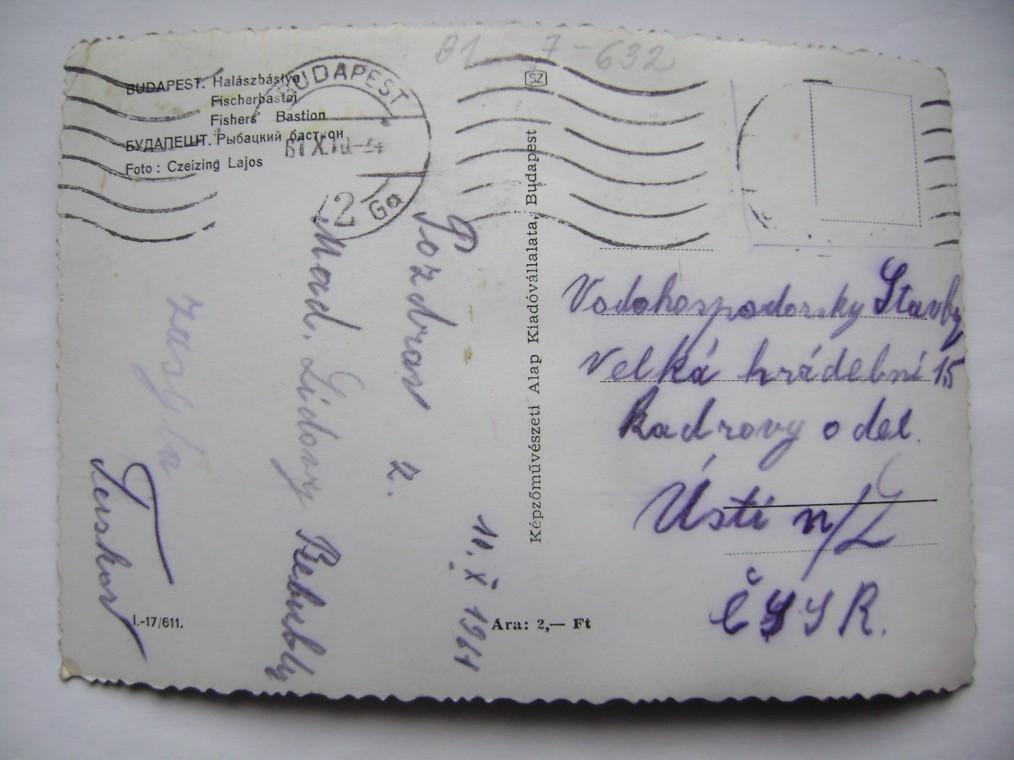 B1 7-632
BUDAPEST. Halászbástya
Fischerbastei
Fishers' Bastion
БУДАПЕШТ. Рыбацкий бастион
Foto: Czeizing Lajos
BUDAPEST
61 X.10-4
2 Ga
SZ
Képzőművészeti Alap Kiadóvállalata, Budapest
11. X 1961
Pozdrav z.
Mad. Lidovy Rebubly
zasyla
Vodohospodarsky Stavby
Velká hrádební 15
Kadrovy odel.
Ústí n/L
ČSSR.
I.-17/611.
Ára: 2,— Ft